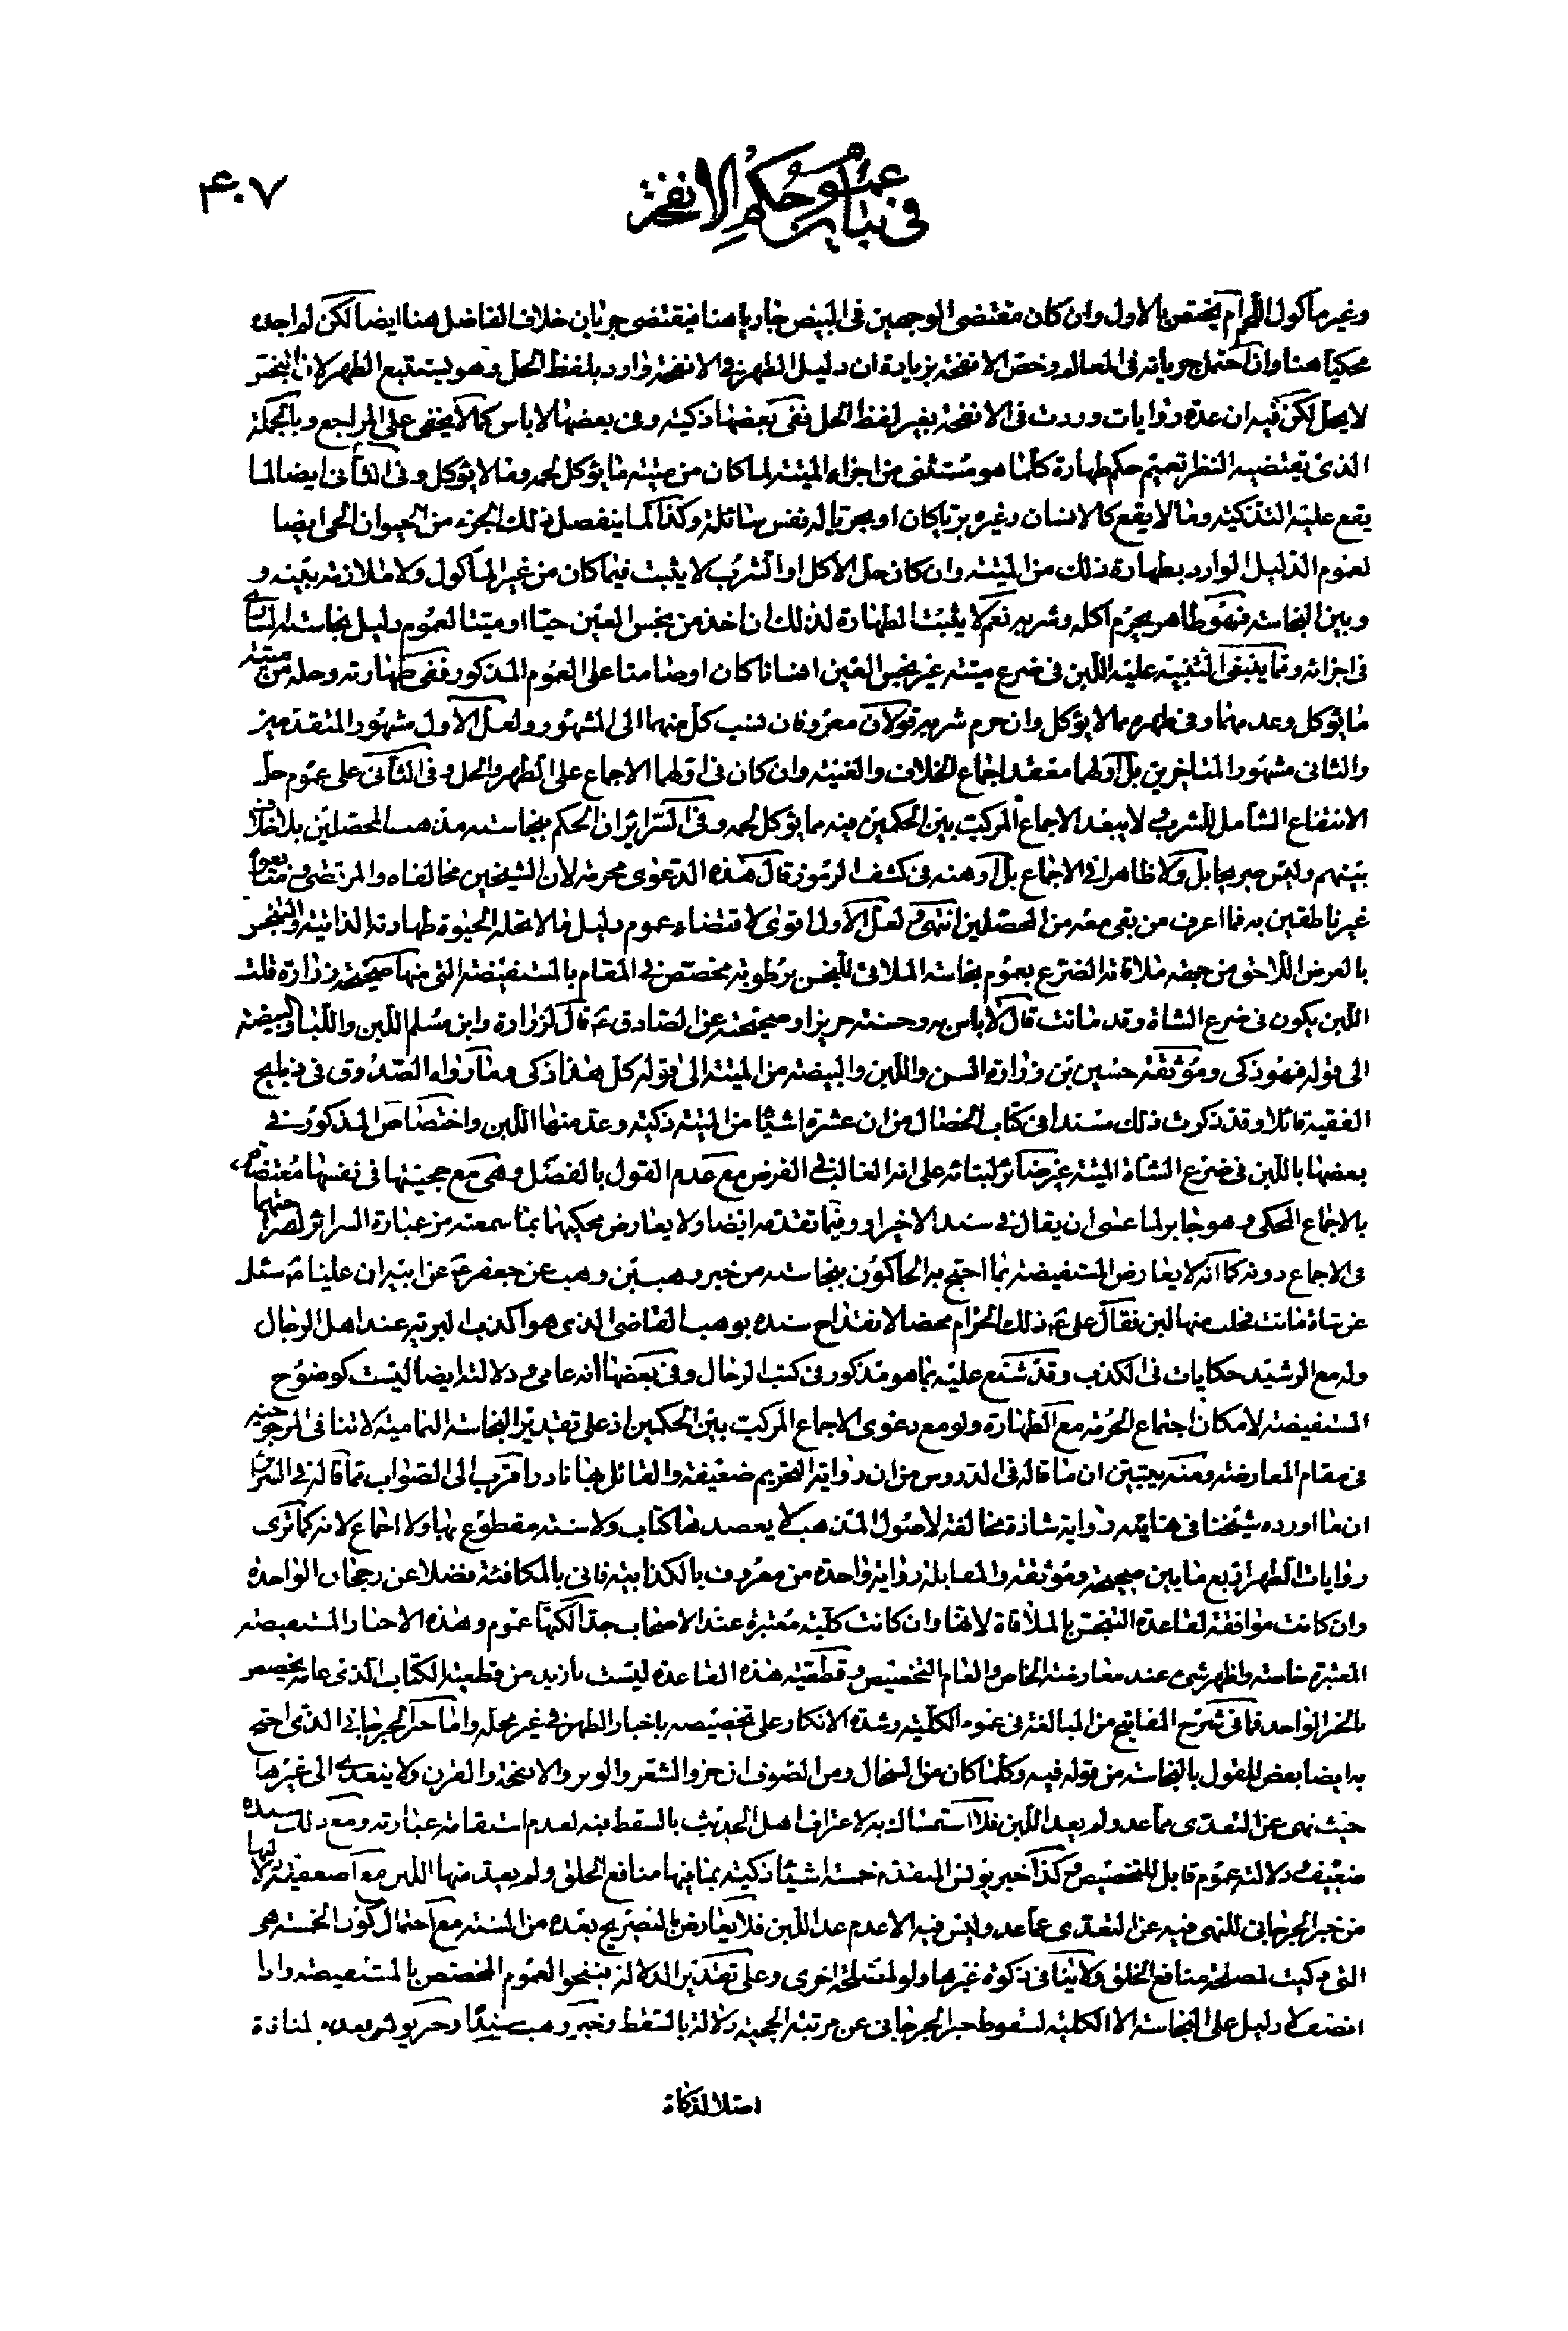 في بيان عموم حكم الانفحة
۴۰۷
وغير مأكول اللحم ام يختص بالاول وان كان مقتضى الوجهين فى البيض جاريا هنا فيقتضى جريان خلاف الفاضل هنا ايضا لكن لم اجده
محكيا هنا وان احتمل جريانه فى المعالم وخص الانفحة بزيادة ان دليل الطهر فى الانفحة وارد بلفظ الحل وهو يستتبع الطهر لان النجس
لا يحل لكن فيه ان عدة روايات وردت فى الانفحة بغير لفظ الحل ففى بعضها ذكية وفى بعضها لا باس كما لا يخفى على المراجع وبالجملة
الذى يقتضيه النظر تعميم حكم طهارة كلما هو مستثنى من اجزاء الميتة لما كان من ميتة ما يؤكل لحمه وما لا يؤكل وفى الثانى ايضا لما
يقع عليه التذكية وما لا يقع كالانسان وغيره بريا كان او بحريا له نفس سائلة وكذا كما ينفصل ذلك الجزء من الحيوان الحى ايضا
لعموم الدليل الوارد بطهارة ذلك من الميتة وان كان حل الاكل او الشرب لا يثبت فيما كان من غير المأكول ولا ملازمة بينه و
وبين النجاسة فهو طاهر يحرم اكله وشربه نعم لا يثبت الطهارة لذلك ان اخذ من نجس العين حيا او ميتا لعموم دليل نجاسته السارى
فى اجزائه ومما ينبغى التنبيه عليه اللبن فى ضرع ميتة غير نجس العين انسانا كان او صامتا على العموم المذكور ففى طهارته وحله من ميتة
ما يؤكل وعدمهما وفى طهره مما لا يؤكل وان حرم شربه قولان معروفان نسب كل منهما الى المشهور ولعل الاول مشهور المتقدمين
والثانى مشهور المتاخرين بل اولهما معقد اجماع الخلاف والغنية وان كان فى اولهما الاجماع على الطهر والحل وفى الثانى على عموم حل
الانتفاع الشامل للشرب لا يبعد الاجماع المركب بين الحكمين فيه مما يؤكل لحمه وفى السرائر ان الحكم بنجاسته مذهب المحصلين بلا خلاف
بينهم وليس جديرا بل ولا ظاهرا فى الاجماع بل اوهنه فى كشف الرموز قال هذه الدعوى محرفة لان الشيخين مخالفاه والمرتضى واتباعه
غير ناطقين به فما اعرف من بقى معه من المحصلين انتهى ولعل الاول اقوى لاقتضاء عموم دليل ما لا تحله الحيوة طهارته الذاتية والتنجس
بالعرض اللاحق من جهة ملاقاته الضرع بعموم نجاسة الملاقى للنجس برطوبة مخصص فى المقام بالمستفيضة التى منها صحيحة زرارة قلت
اللبن يكون فى ضرع الشاة وقد ماتت قال لا باس به وحسنة حريز او صحيحته عن الصادق ع قال لزرارة وابن مسلم اللبن واللباء والبيضة
الى قوله فهو ذكى وموثقة حسين بن زرارة السن واللبن والبيضة من الميتة الى قوله كل هذا ذكى وما رواه الصدوق فى
الفقيه قائلا وقد ذكرت ذلك مسندا فى كتاب الخصال من ان عشرة اشياء من الميتة ذكية وعد منها اللبن واختصاص المذكور فى
بعضها باللبن فى ضرع الشاة الميتة غير ضائر لبنائه على انه الغالب فى الفرض مع عدم القول بالفصل وهى مع حجيتها فى نفسها معتضدة
بالاجماع المحكى وهو جابر لما عسى ان يقال فى سند الاخير او وفيما تقدمه ايضا ولا يعارض محكيهما بما سمعته من عبارة السرائر لصراحتهما
فى الاجماع دونه كما انه لا يعارض المستفيضة بما احتج به الحاكون بنجاسته من خبر وهب بن وهب عن جعفر ع عن ابيه ان عليا ع سئل
عن شاة ماتت فحلب منها لبن فقال على ع ذلك الحرام محضا لانقداح سنده بوهب القاضى الذى هو اكذب البرية عند اهل الرجال
وله مع الرشيد حكايات فى الكذب وقد شنع عليه بما هو مذكور فى كتب الرجال وفى بعضها انه عامى ودلالته ايضا ليست كوضوح
المستفيضة لامكان اجتماع الحرمة مع الطهارة ولو مع دعوى الاجماع المركب بين الحكمين اذ على تقدير النجاسة التمامية لا تنافى المرجوحية
فى مقام المعارضة ومنه يتبين ان ما قاله فى الدروس من ان رواية التحريم ضعيفة والقائل بها نادر اقرب الى الصواب مما قاله فى السرائر
ان ما اورده شيخنا فى نهايته رواية شاذة مخالفة لاصول المذهب لا يعضدها كتاب ولا سنة مقطوع بها ولا اجماع لانه كما ترى
روايات الطهر اربع ما بين صحيحة وموثقة والمقابلة رواية واحدة من معروف بالكذابية فانى بالمكافئة فضلا عن رجحان الواحدة
وان كانت موافقة لقاعدة التنجس بالملاقاة لانها وان كانت كلية معتبرة عند الاصحاب جدا لكنها عموم وهذه الاخبار المستفيضة
المعتبرة خاصة واظهر شىء عند معارضة الخاص والعام التخصيص وقطعية هذه القاعدة ليست بازيد من قطعية الكتاب الذى عامه يخصص
بالخبر الواحد فما فى شرح المفاتيح من المبالغة فى عموم الكلية وشدة الانكار على تخصيصه باخبار الطهر فى غير محله واما خبر الجرجانى الذى احتج
به ايضا بعض للقول بالنجاسة من قوله فيه وكلما كان من السخال ومن الصوف ان جز والشعر والوبر والانفحة والقرن ولا يتعدى الى غيرها
حيث نهى عن التعدى مما عد ولم يعد اللبن فلا استمساك به لاعتراف اهل الحديث بالسقط فيه لعدم استقامة عبارته ومع ذلك سنده
ضعيف ودلالته عموم قابل للتخصيص وكذا خبر يونس المتقدم خمسة اشياء ذكية بما فيها منافع الخلق ولم يعد منها اللبن مع اضعفية دلالتها
من خبر الجرجانى للنهى فيه عن التعدى عما عد وليس فيه الا عدم عد اللبن فلا يعارض بالتصريح بعده من الستة مع احتمال كون الخمسة هى
التى ذكيت لمصلحة منافع الخلق ولا ينافى ذكوة غيرها ولو لمصلحة اخرى وعلى تقدير الدلالة فبنحو العموم المختص بالمستفيضة واذا
اتضح لا دليل على النجاسة الا الكلية لسقوط خبر الجرجانى عن مرتبة الحجية دلالة بالسقط وخبر وهب سندا وخبر يونس بعدم لمنافاة
اصلا لذكاة